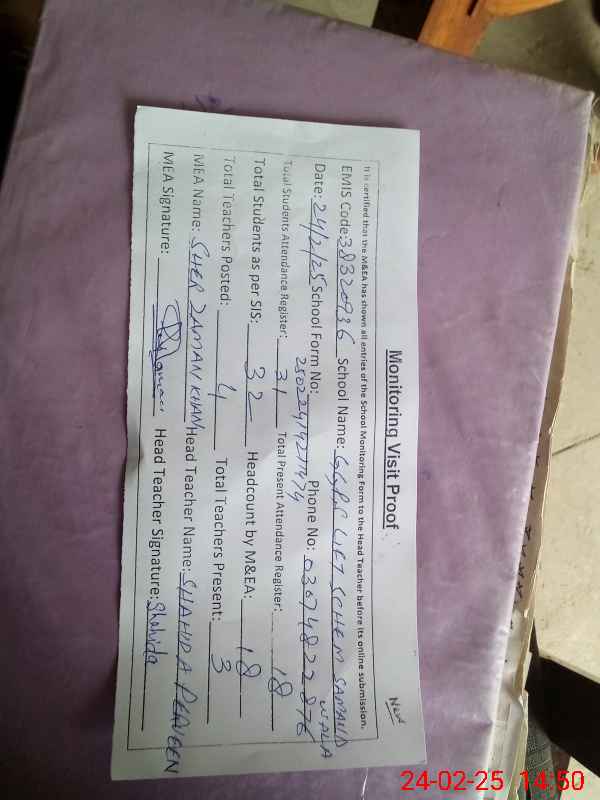 Monitoring Visit Proof
New
It is certified that the M&EA has shown all entries of the School Monitoring Form to the Head Teacher before its online submission.
EMIS Code: 38320936 School Name: GGPS LIFT SCHEM SAMAND WALA
Date: 24/2/25 School Form No: Phone No: 03074822876
Total Students Attendance Register: 31 Total Present Attendance Register: 18
Total Students as per SIS: 32 Headcount by M&EA: 18
Total Teachers Posted: 4 Total Teachers Present: 3
MEA Name: SHER ZAMAN KHAN Head Teacher Name: SHAHIDA PERVEEN
MEA Signature: Head Teacher Signature: Shahida
24-02-25 14:50